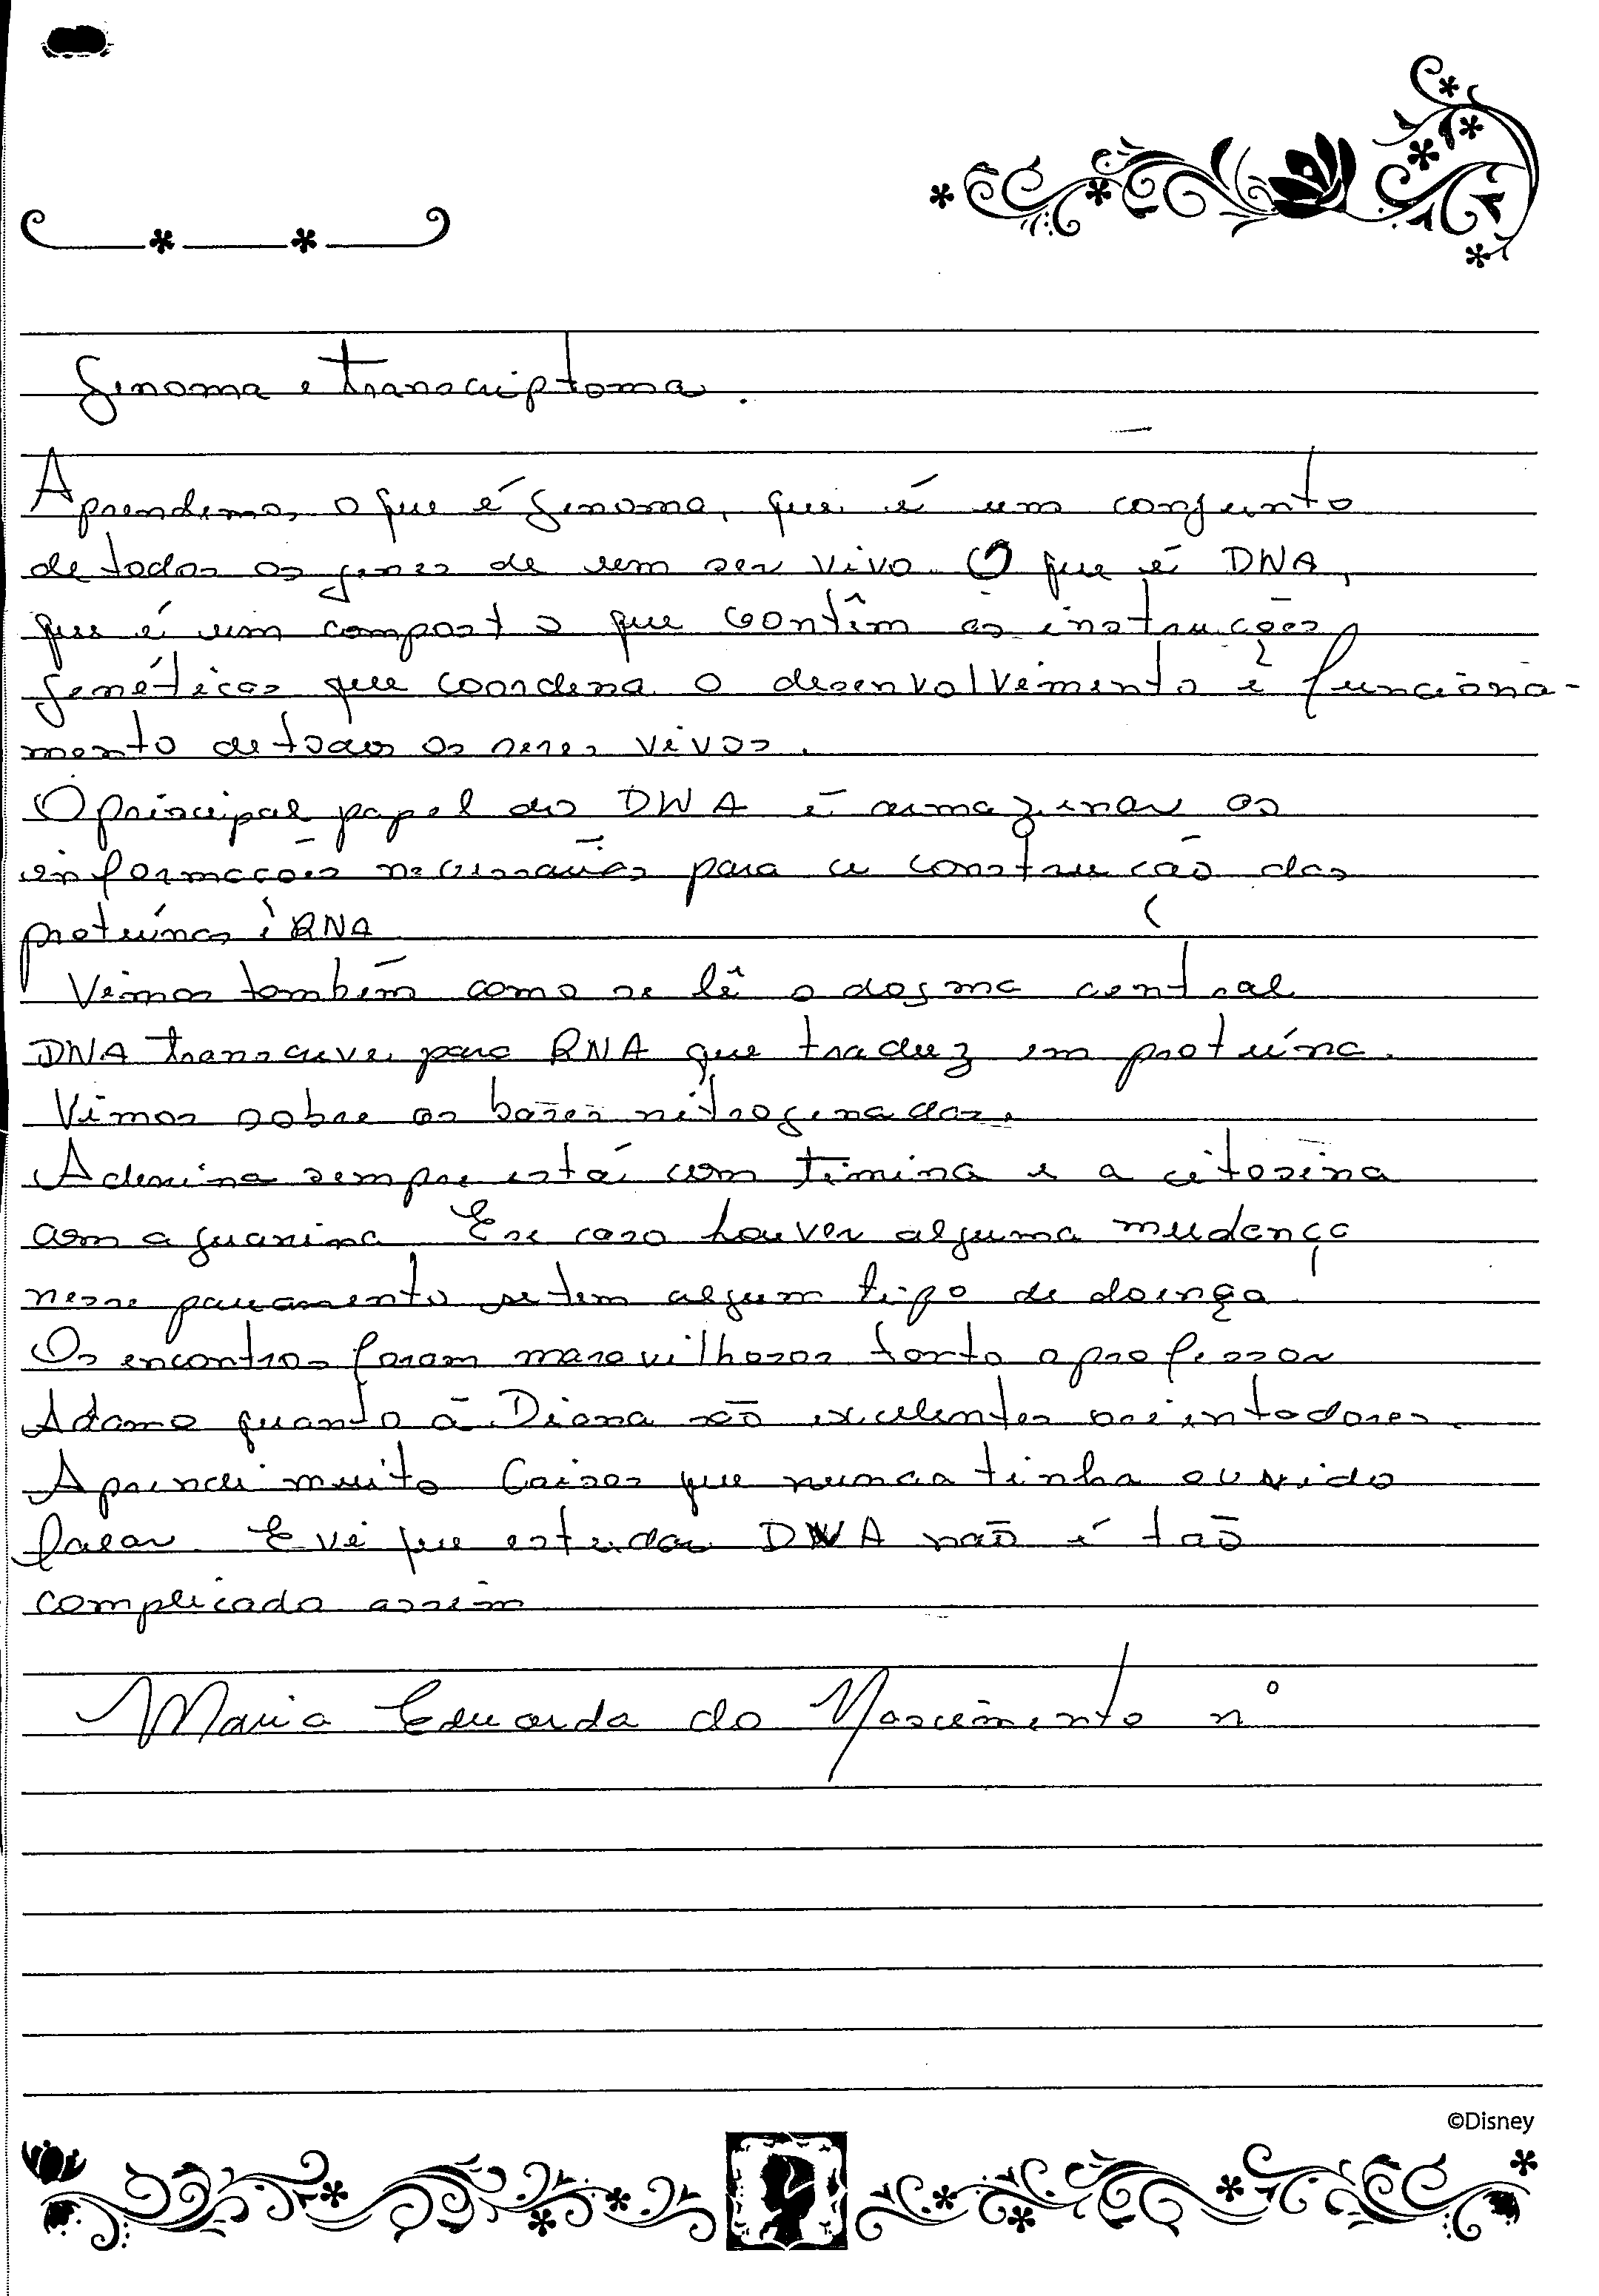 Genoma e transcriptoma.
Aprendemos o que é genoma, que é um conjunto
de todos os genes de um ser vivo. O que é DNA,
que é um composto que contêm as instruções
genéticas que coordena o desenvolvimento e funciona-
mento de todos os seres vivos.
O principal papel do DNA é armazenar as
informações necessárias para a construção das
proteínas e RNA
Vimos também como se lê o dogma central
DNA transcreve para RNA que traduz em proteína.
Vimos sobre as bases nitrogenadas.
Adenina sempre está com timina e a citosina
com a guanina E se caso houver alguma mudança
nesse pareamento se tem algum tipo de doença
Os encontros foram maravilhosos tanto o professor
Adamo quanto a Diana são excelentes orientadores.
Aprendi muito Coisas que nunca tinha ouvido
falar. E vi que estudar DNA não é tão
complicado assim
Maria Eduarda do Nascimento nº
©Disney